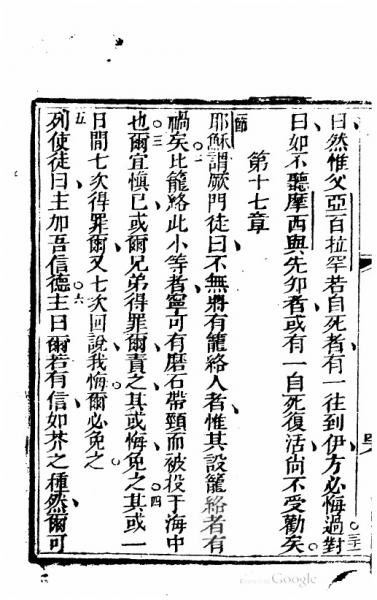 曰然惟父亞百拉罕若自死者有一往到伊方必悔過對三十
曰如不聽摩西與先知者或有一自死復活尚不受勸矣
第十七章
節一耶穌謂厥門徒曰不無將有籠絡人者惟其設籠絡者有
禍矣二比籠絡此小等者寧可有磨石帶頸而被投于海中
也三爾宜慎已或爾兄弟得罪爾責之其或悔免之四其或一
日間七次得罪爾又七次回說我悔爾必免之
五列使徒曰主加吾信德六主曰爾若有信如芥之種然爾可
Google